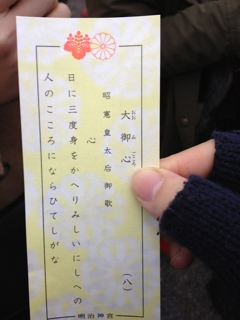 大御心
おお み ごころ
(八)
昭憲皇太后御歌
心
日に三度身をかへりみしいにしへの
人のこころにならひてしがな
明治神宮